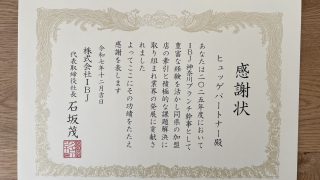 感謝状
ヒュッゲパートナー殿
あなたは二〇二五年度において
IBJ神奈川ブランチ幹事として
豊富な経験を活かし同県の加盟
店の牽引と積極的な課題解決に
取り組まれ業界の発展に貢献さ
れました
よってここにその功績をたたえ
感謝を表します
令和七年十二月吉日
株式会社IBJ
代表取締役社長 石坂茂